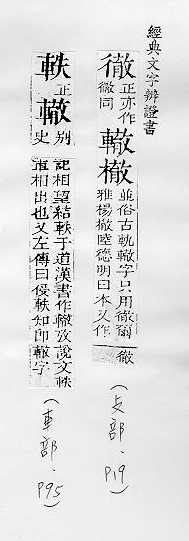 經典文字辨證書
徹 正亦作徹同 轍㯙 並俗古軌轍字只用徹爾
雅楊㯙陸德明曰本又作徹
(攴部.P19)
軼 正 轍 别 史
記相望結軼于道漢書作轍攷說文軼
車相出也又左傳曰侵軼知即轍字
(車部.P95)